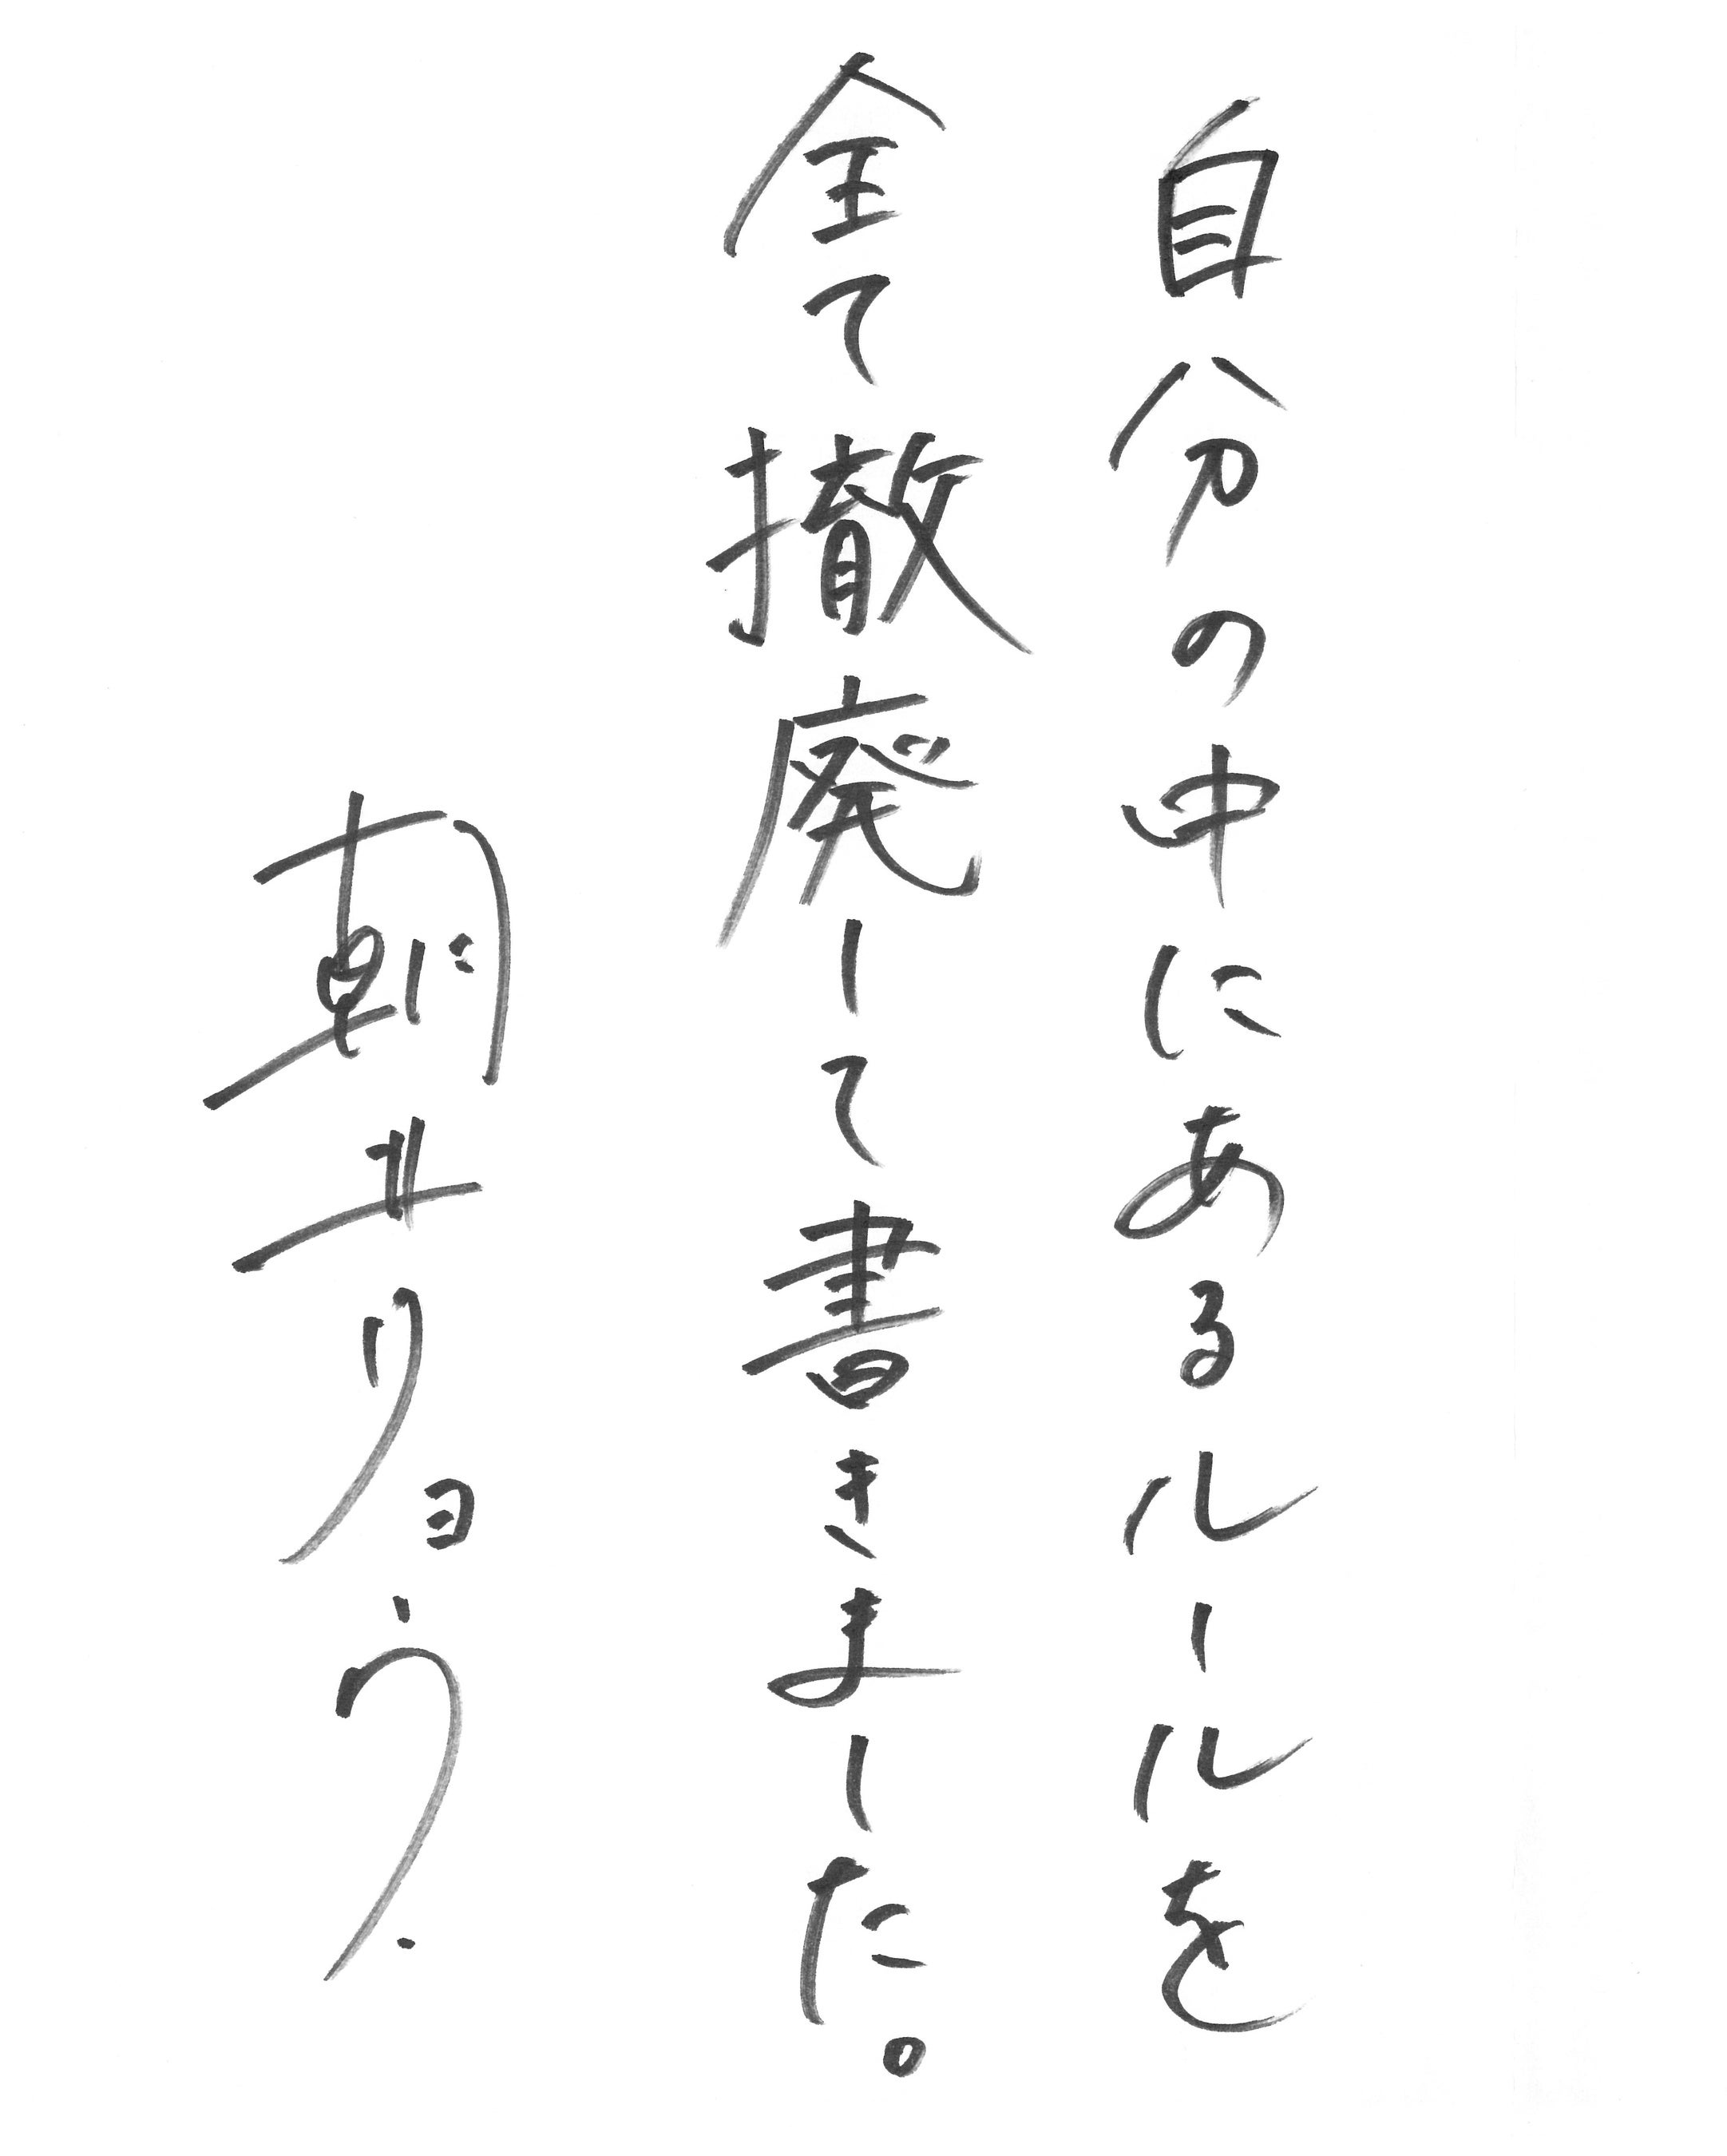 自分の中にあるルールを
全て撤廃して書きました。
朝井リョウ.